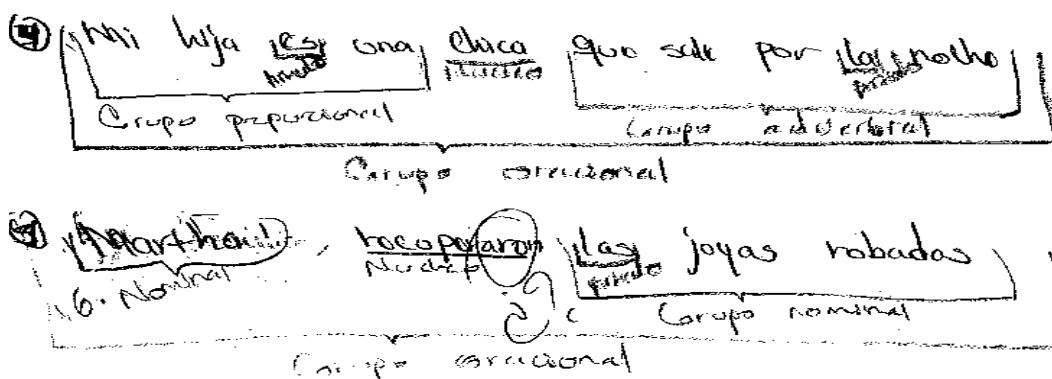 ④ Mi hija es una chica que sale por la noche
Núcleo
Grupo preposicional Grupo adverbial
Grupo oracional
Martha, recoperaron las joyas robadas
G. Nominal Núcleo ¿? Grupo nominal
Grupo oracional